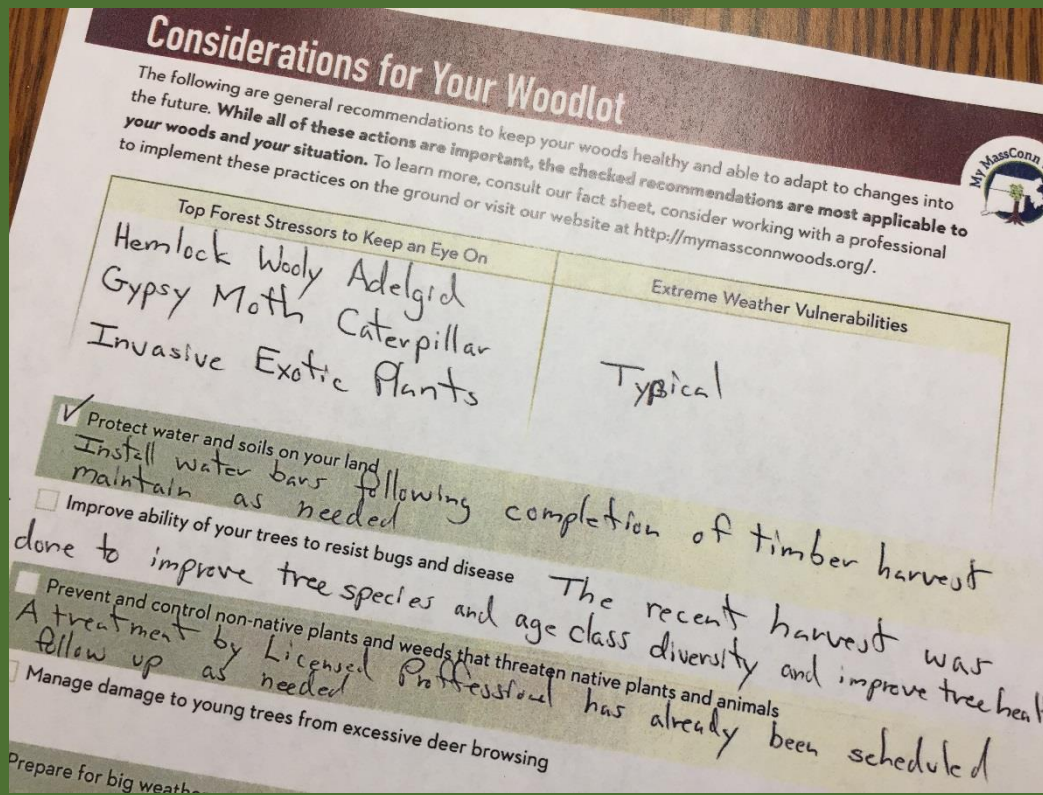 Considerations for Your Woodlot
The following are general recommendations to keep your woods healthy and able to adapt to changes into
the future. While all of these actions are important, the checked recommendations are most applicable to
your woods and your situation. To learn more, consult our fact sheet, consider working with a professional
to implement these practices on the ground or visit our website at http://mymassconnwoods.org/.
My MassConn
Top Forest Stressors to Keep an Eye On
Hemlock Wooly Adelgid
Gypsy Moth Caterpillar
Invasive Exotic Plants
Extreme Weather Vulnerabilities
Typical
Protect water and soils on your land
Install water bars following completion of timber harvest
maintain as needed
Improve ability of your trees to resist bugs and disease
The recent harvest was
done to improve tree species and age class diversity and improve tree heal
Prevent and control non-native plants and weeds that threaten native plants and animals
A treatment by Licensed Proffessional has already been scheduled
follow up as needed
Manage damage to young trees from excessive deer browsing
Prepare for big weathe